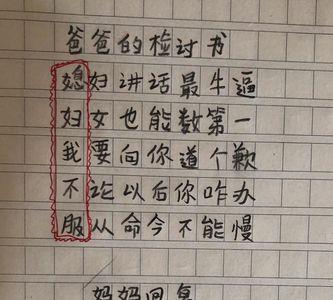 爸爸的检讨书
媳妇讲话最牛逼
妇女也能数第一
我要向你道个歉
不论以后你咋办
服从命令不能慢
妈妈回复